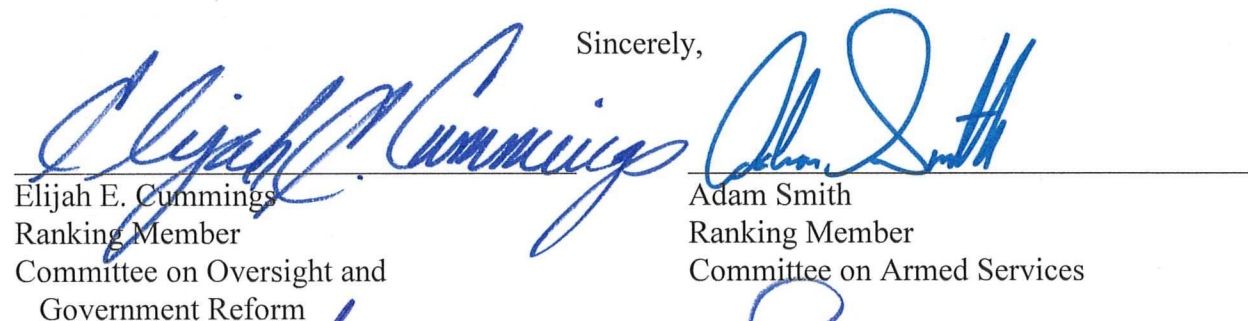 Sincerely,
Elijah E. Cummings
Adam Smith
Elijah E. Cummings
Ranking Member
Committee on Oversight and
Government Reform
Adam Smith
Ranking Member
Committee on Armed Services